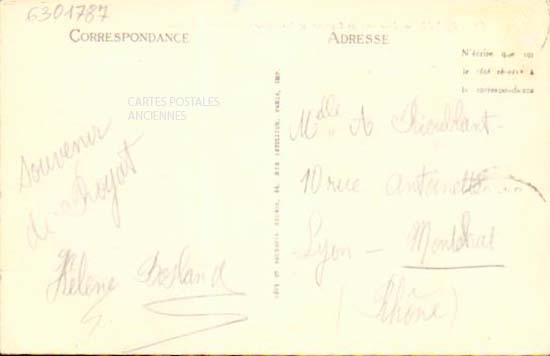 6301787
CORRESPONDANCE
ADRESSE
N'écrire que sur
le côté réservé à
la correspondance
CARTES POSTALES
ANCIENNES
Souvenir
de Royat
Hélène
Mdlle A
10 rue Antoinette
Lyon - Montchat
(Rhône)